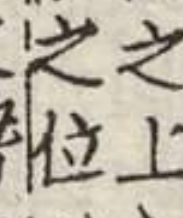 之上
之位